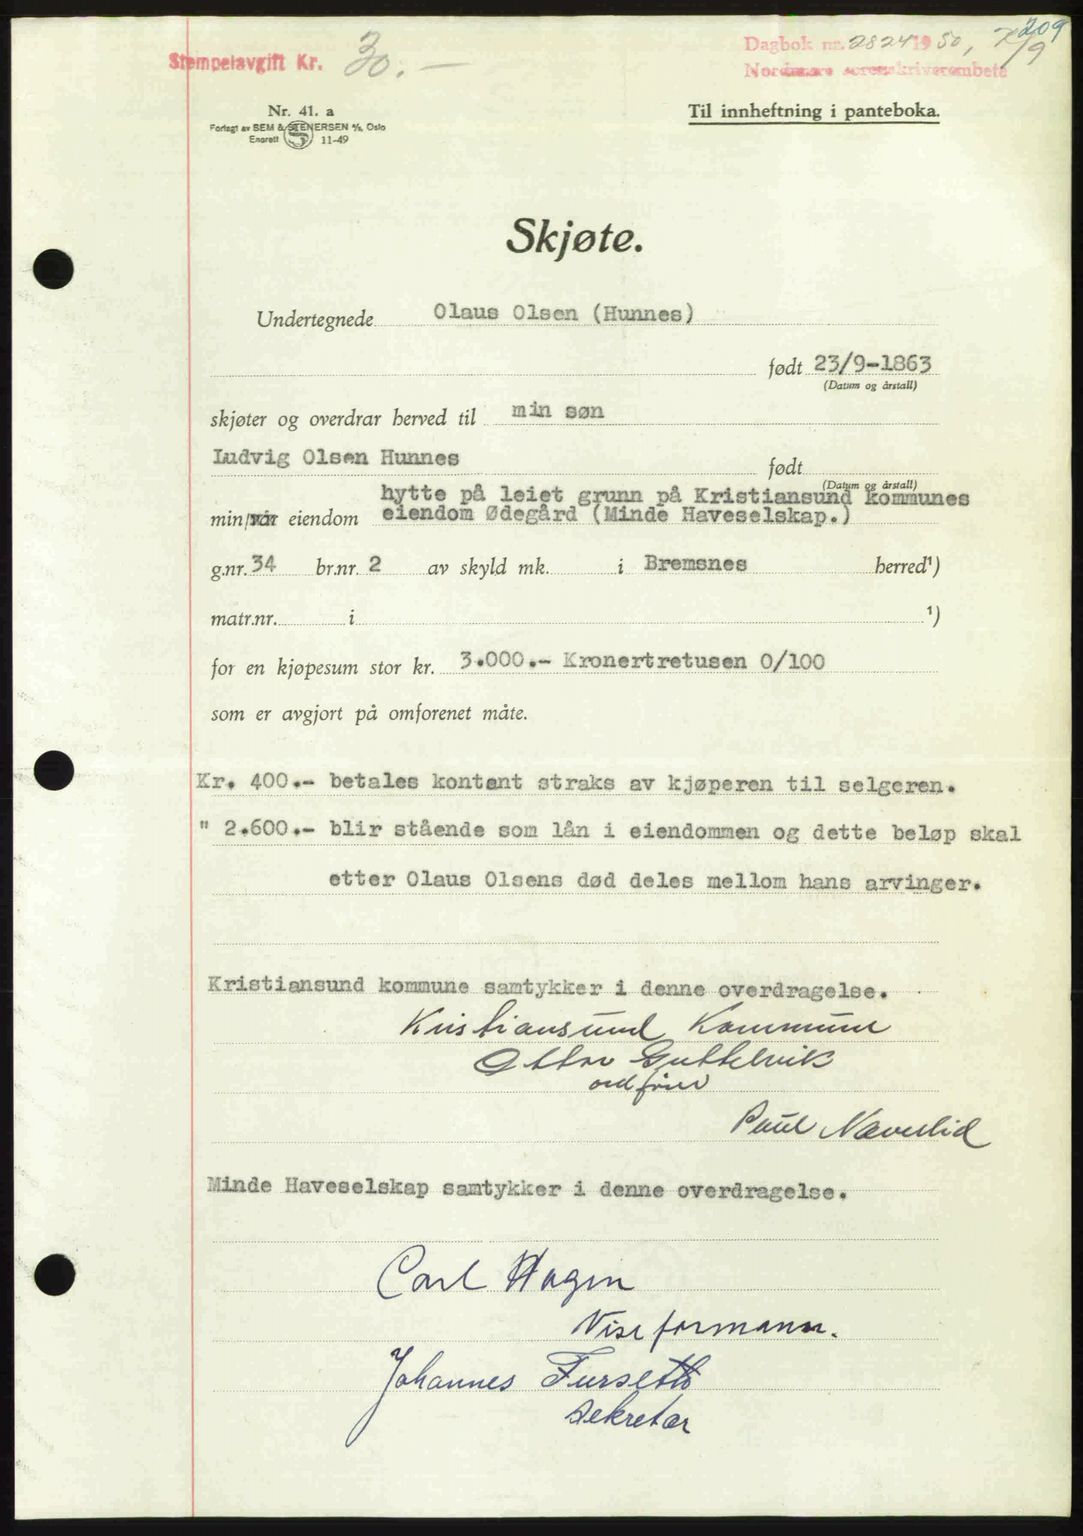 209
Stempelavgift Kr. 30.—
Dagbok nr. 2824 1950,
Nordmøre sorenskriverembete
Nr. 41. a
Forlagt av SEM & STENERSEN A/S, Oslo
Enerett 11-49
Til innheftning i panteboka.
Skjøte.
Undertegnede Olaus Olsen (Hunnes)
født 23/9-1863
(Datum og årstall)
skjøter og overdrar herved til min søn
Ludvig Olsen Hunnes født
(Datum og årstall)
hytte på leiet grunn på Kristiansund kommunes
min/vår eiendom eiendom Ødegård (Minde Haveselskap.)
g.nr. 34 br.nr. 2 av skyld mk. i Bremsnes herred¹)
matr.nr. i ¹)
for en kjøpesum stor kr. 3.000.- Kronertretusen 0/100
som er avgjort på omforenet måte.
Kr. 400.- betales kontant straks av kjøperen til selgeren.
" 2.600.- blir stående som lån i eiendommen og dette beløp skal
etter Olaus Olsens død deles mellom hans arvinger.
Kristiansund kommune samtykker i denne overdragelse.
Kristiansund Kommune
Ottar Guttelvik
ordfører
Paul Naverlid
Minde Haveselskap samtykker i denne overdragelse.
Carl Hagen
Viseformann.
Johannes Fursetb
sekretær